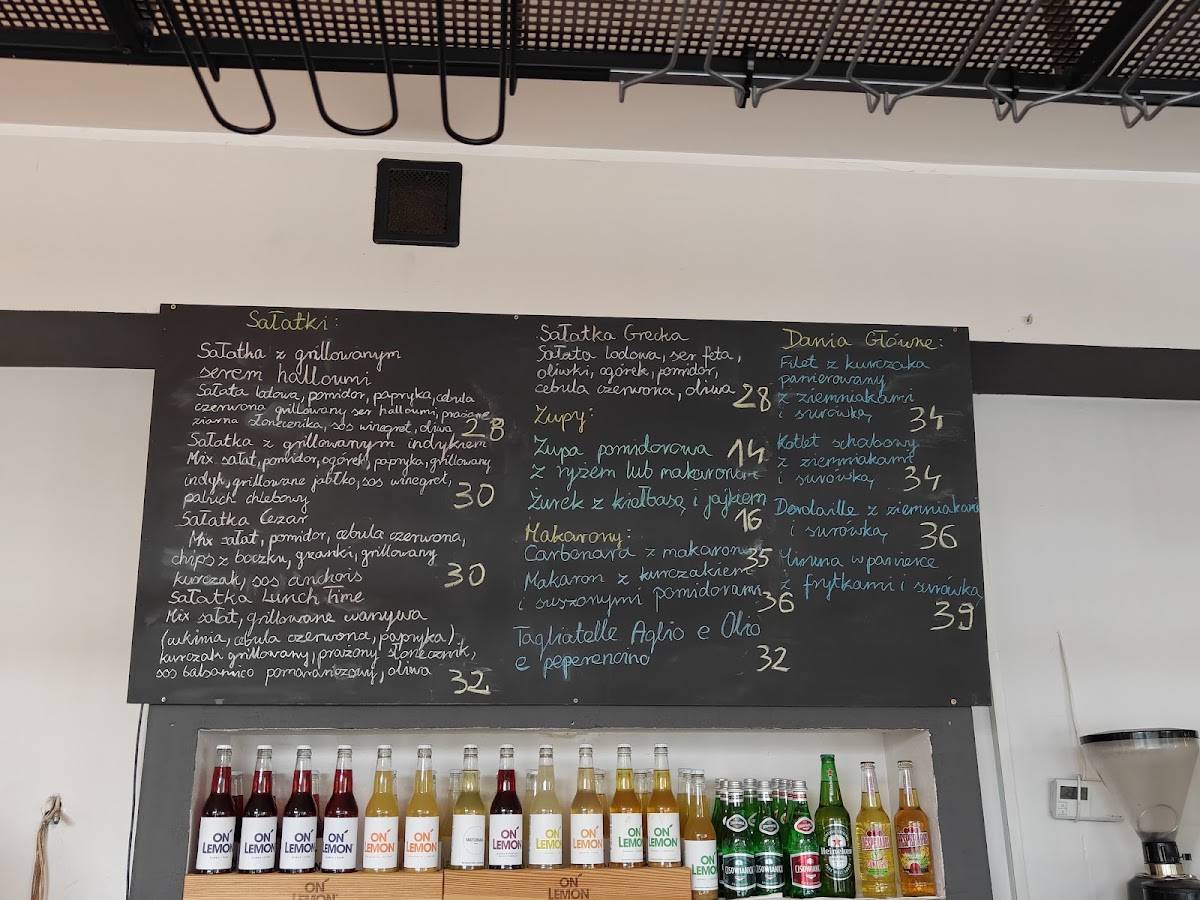 Sałatki:
Sałatka z grillowanym
serem halloumi
Sałata lodowa, pomidor, papryka, cebula
czerwona grillowany ser halloumi, prażone
ziarna słonecznika, sos winegret, oliwa 28
Sałatka z grillowanym indykiem
Mix sałat, pomidor, ogórek, papryka, grillowany
indyk, grillowane jabłko, sos winegret,
paluch chlebowy 30
Sałatka Cezar
Mix sałat, pomidor, cebula czerwona,
chips z boczku, grzanki, grillowany
kurczak, sos anchois 30
Sałatka Lunch Time
Mix sałat, grillowane warzywa
(cukinia, cebula czerwona, papryka),
kurczak grillowany, prażony słonecznik,
sos balsamico pomarańczowy, oliwa 32
Sałatka Grecka
Sałata lodowa, ser feta,
oliwki, ogórek, pomidor,
cebula czerwona, oliwa 28
Zupy:
Zupa pomidorowa 14
z ryżem lub makaronem
Żurek z kiełbasą i jajkiem
16
Makarony:
Carbonara z makaronem 35
Makaron z kurczakiem
i suszonymi pomidorami 36
Tagliatelle Aglio e Olio
e peperencino 32
Dania Główne:
Filet z kurczaka
panierowany
z ziemniakami
i surówką 34
Kotlet schabowy
z ziemniakami
i surówką 34
z ziemniakami
i surówką 36
w panierce
z frytkami i surówką
39
ON LEMON
ON LEMON
ON LEMON
ON LEMON
ON LEMON
ON LEMON
ON LEMON
ON LEMON
ON LEMON
ON LEMON
ON LEMON
ON LEMON
CISOWIANKA
CISOWIANKA
CISOWIANKA
Heineken
DESPERADOS
DESPERADOS
ON LEMON
ON LEMON